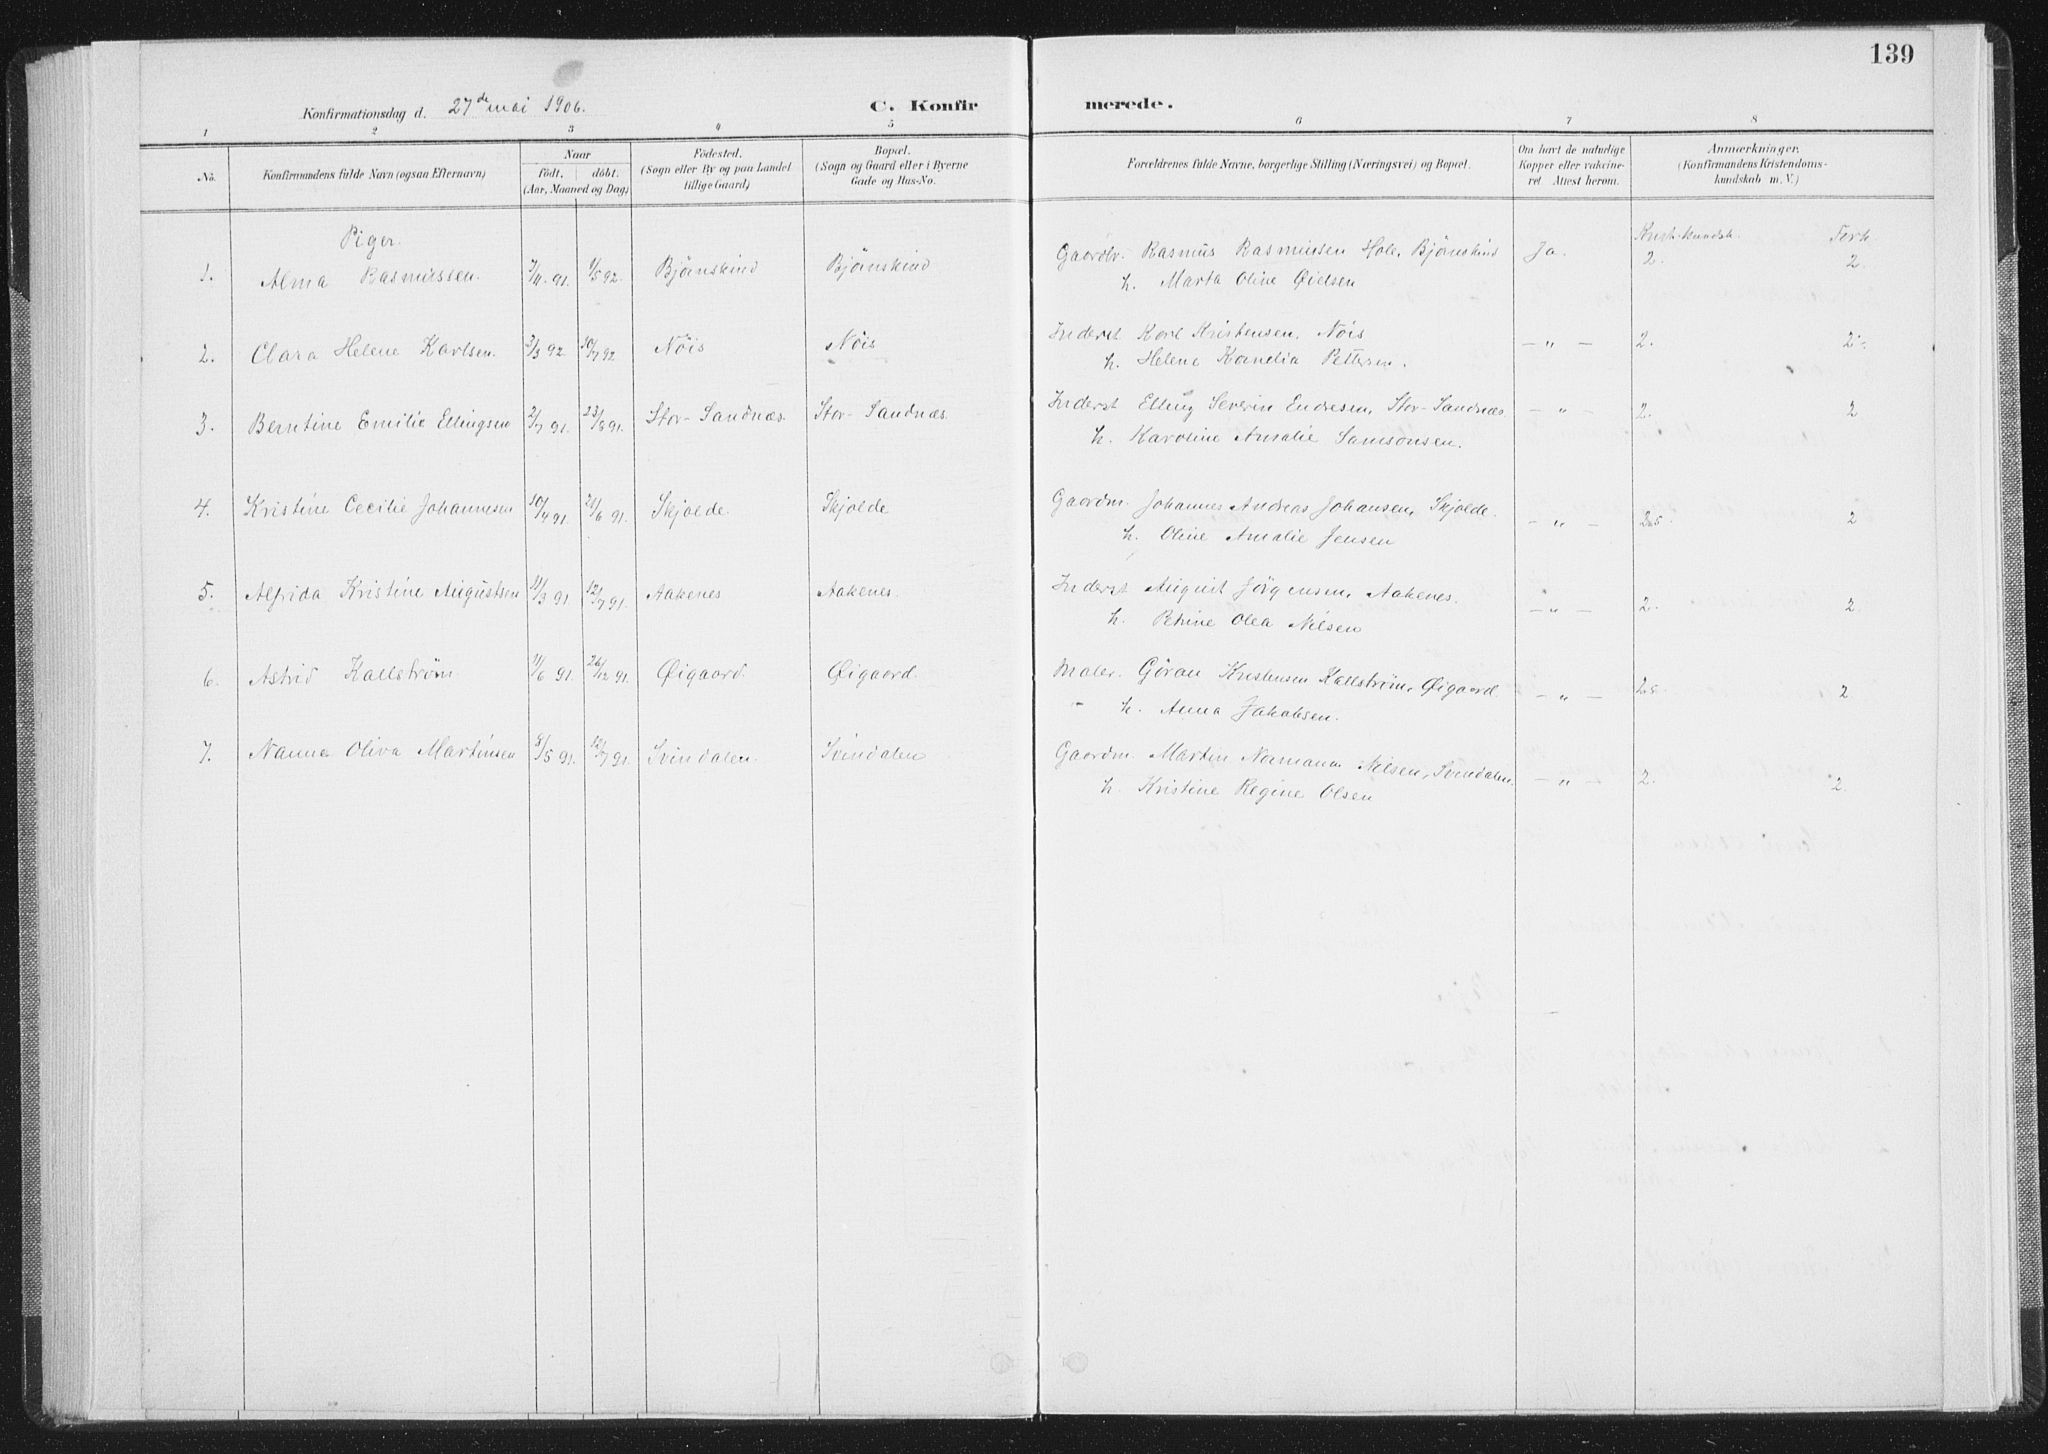 139
Konfirmationsdag d. 27de mai 1906. C. Konfirmerede.
1 2 3 4 5 6 7 8
No. Konfirmandens fulde Navn (ogsaa Efternavn) Naar födt. döbt. (Aar, Maaned og Dag) Födested. (Sogn eller By og paa Landet tillige Gaard) Bopæl. (Sogn og Gaard eller i Byerne Gade og Hus-No. Forældrenes fulde Navne, borgerlige Stilling (Næringsvei) og Bopæl. Om havt de naturlige Kopper eller vaccineret. Attest herom. Anmærkninger. (Konfirmandens Kristendomskundskab m. V.)
Piger. Krist. kundsk. Forh.
1. Alma Rasmussen. 7/11. 91. 1/5 92. Bjönskind Bjönskind Gaardbr. Rasmus Rasmussen Hole, Bjönskind Ja. 2. 2.
h. Marta Oline Øielsen
2. Clara Helene Karlsen. 3/3 92. 10/7 92 Nöis Nöis Inderst Karl Kristensen, Nöis — „ — 2. 2
h. Helene Kornelia Pettersen.
3. Berntine Emilie Ellingsen 2/7 91. 23/8 91. Stor-Sandnæs. Stor-Sandnæs. Inderst Elling Severin Endresen, Stor-Sandnæs — „ — 2. 2
h. Karoline Amalie Samsonsen.
4. Kristine Cecilie Johannesen 10/4 91. 21/6 91. Skjolde. Skjolde Gaardm. Johannes Andreas Johansen, Skjolde. — „ — 2.5. 2
h. Oline Amalie Jensen
5. Alfrida Kristine Augustsen 11/3 91. 12/7 91. Aakenes Aakenes. Inderst August Jörgensen, Aakenes. — „ — 2. 2.
h. Petrine Olea Nilsen
6. Astrid Kallström 11/6 91. 26/12 91. Øigaard. Øigaard. Maler. Göran Kristensen Kallström, Øigaard. — „ — 2.5. 2
h. Anna Jakobsen.
7. Nanna Oliva Martinsen 8/5 91. 12/7 91. Svindalen. Svindalen Gaardm. Martin Normann Nilsen, Svindalen. — „ — 2. 2.
h. Kristine Regine Olsen